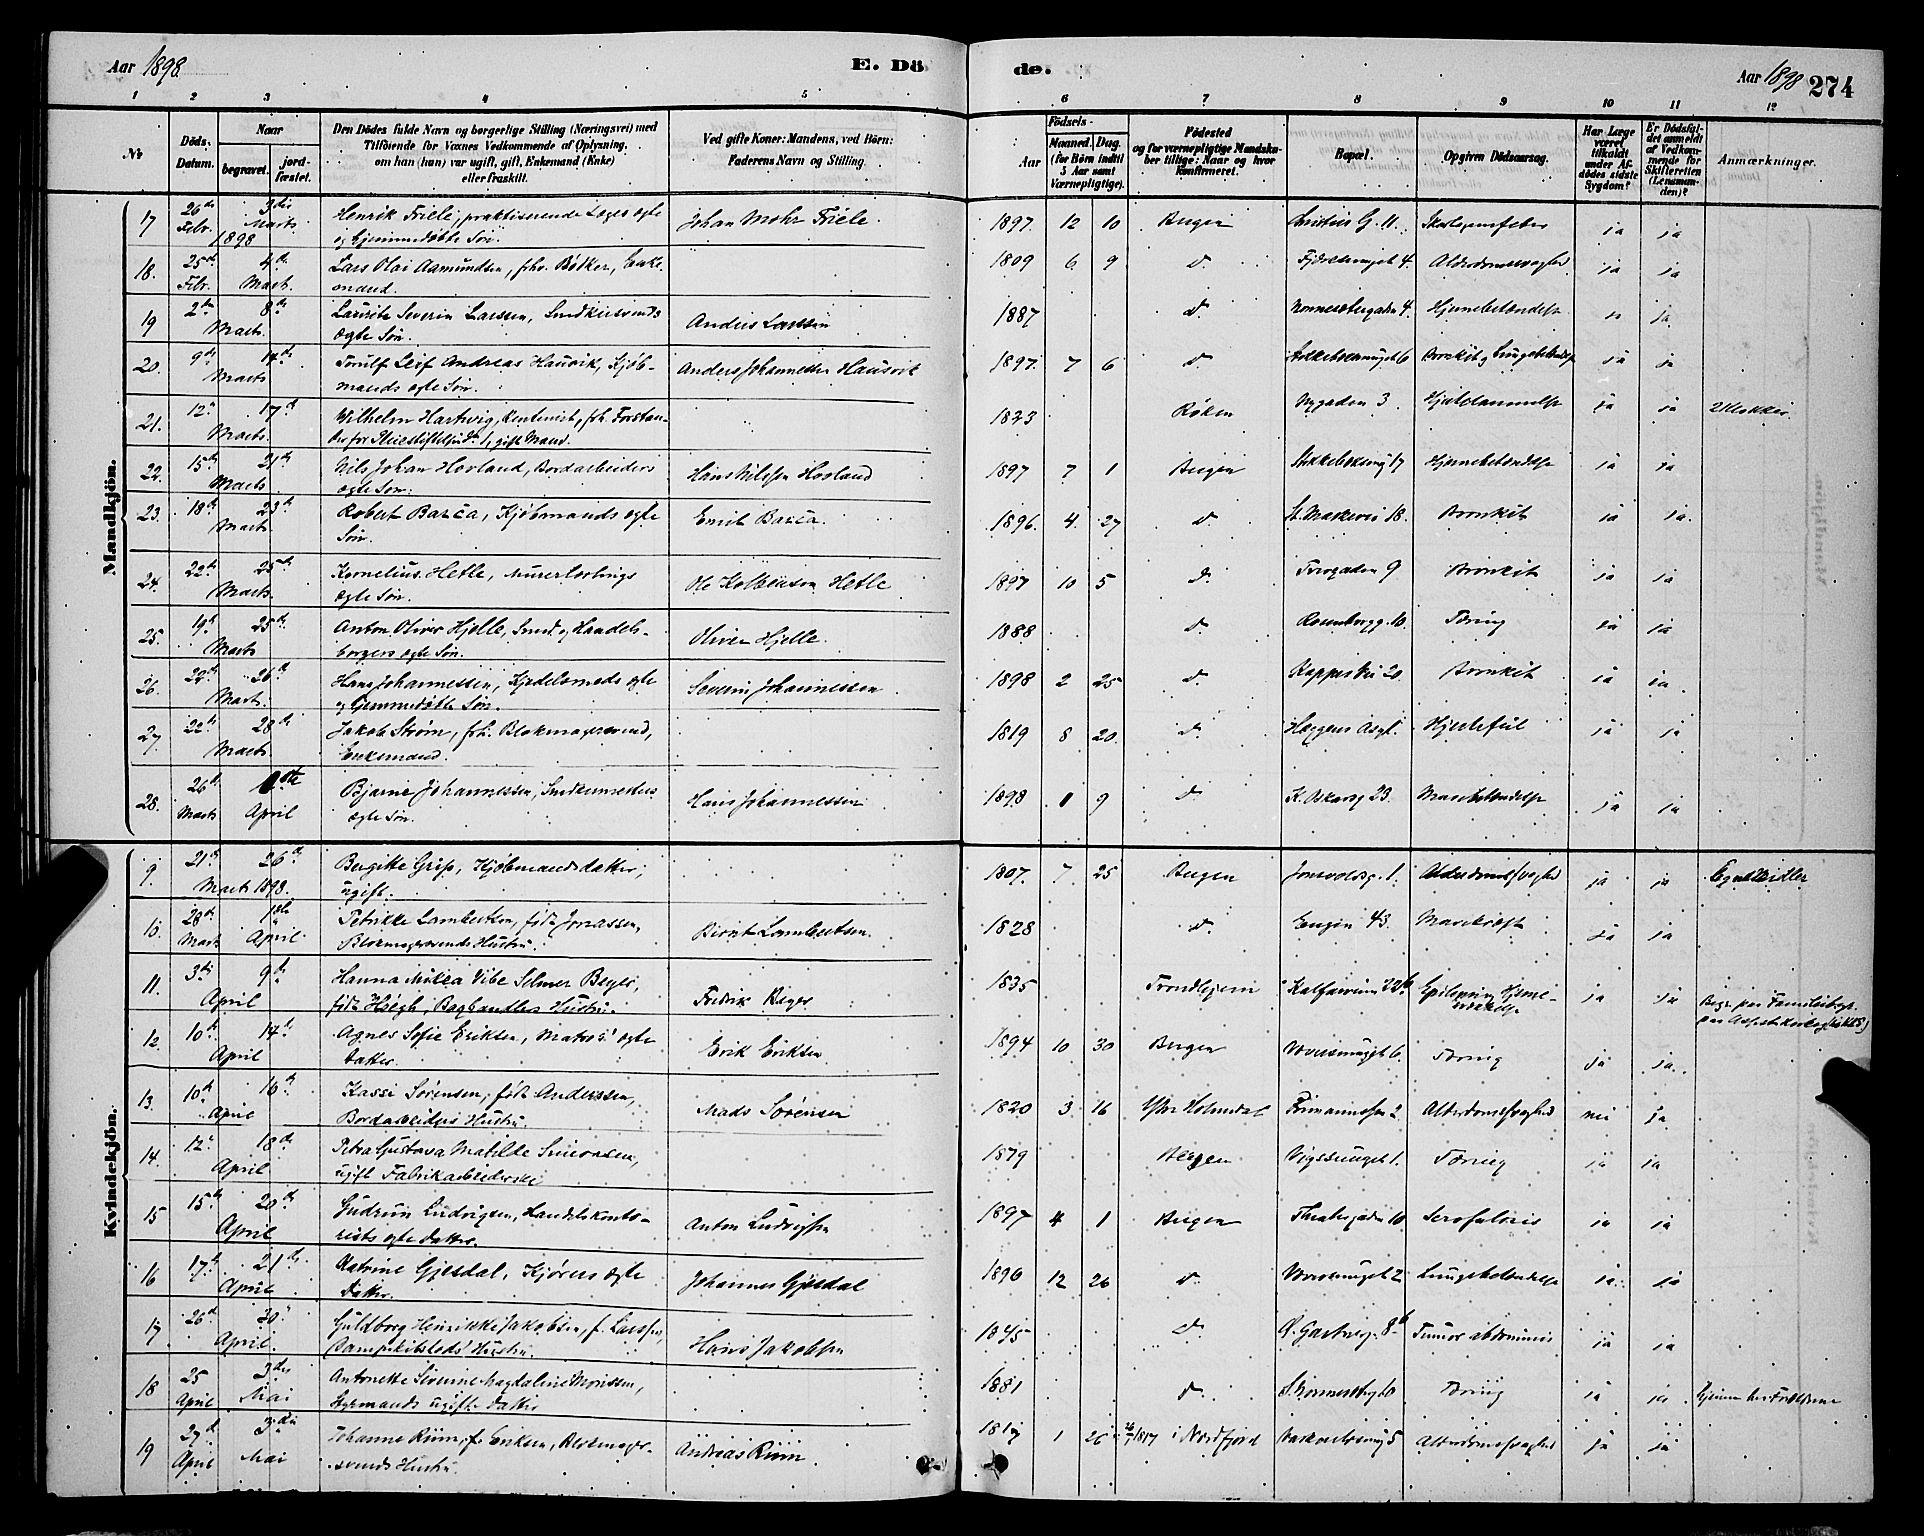 Aar 1898. E. Dö de. Aar 1898 274
1 2 3 4 5 6 7 8 9 10 11 12
№ Döds-Datum. Naar begravet. jordfæstet. Den Dödes fulde Navn og borgerlige Stilling (Næringsvei) med Tilföiende for Voxnes Vedkommende af Oplysning, om han (hun) var ugift, gift, Enkemand (Enke) eller fraskilt. Ved gifte Koner: Mandens, ved Börn: Faderens Navn og Stilling. Födsels- Aar Maaned. Dag. (for Börn indtil 5 Aar samt Værnepligtige). Födested og for værnepligtige Mandskaber tillige: Naar og hvor konfirmeret. Bopæl. Opgiven Dödsaarsag. Har Læge været tilkaldt under Afdödes sidste Sygdom? Er Dödsfaldet anmeldt af Vedkommende for Skifteretten (Lensmanden)? Anmærkninger.
Mandkjön.
17 26de Febr. 1898 3die Marts Henrik Friele, praktiserende Læges ægte og hjemmedøbte Søn. Johan Mohr Friele. 1897. 12 10 Bergen Christies G. 11. ja ja
18. 25de Febr. 4de Marts. Lars Olai Aamundsen, fhv. Bøtker, Enkemand. 1809 6 9 d. Alderdomssvaghed ja ja
19 2den Marts. 8de Laurits Severin Larssen, ægte Søn. Anders Larssen 1887 d. Nonnesætergaden 4. Hjernebetændelse ja
20. 9de Marts 14de Torulf Leif Andreas Hausvik, Kjøbmands ægte Søn. Anders Johannessen Hausvik 1897. 7 6 d. ja ja
21. 12te Marts. 17de Wilhelm Hartvig, Rentenist, fhv. Forstander for gift Mand. 1823 Røken Nygaden 3. Hjertelammelse ja ja 2 Klokker.
22. 15de Marts 21de Nils Johan Hovland, Bordarbeiders ægte Søn. Hans Nilssen Hovland 1897 7 1 Bergen 17 Hjernebetændelse ja ja
23. 18de Marts. 23de Robert Barca, Kjøbmands ægte Søn. Emil Barca. 1896. 4. 27 d St. Markevei 18. Bronkit ja ja.
24. 22de Marts. 25de Kornelius Hetle, ægte Søn. Ole Kolbenson Hetle 1897 10 5 d. 9 Bronkit ja ja
25. 19de Marts 25de Anton Oliver Hjelle, Smed og Handelsborgers ægte Søn. Oliver Hjelle. 1888 d. Rosenbergg. 10. Tæring ja ja
26. 22de Marts. 26de Hans Johannessen, Kjedelsmeds ægte og hjemmedøbte Søn. Severin Johannessen 1898 2 25 d. 20. Bronkit ja ja.
27. 22de Marts 28de Jakob Strøm, fhv. Blokmagersvend, Enkemand. 1819 8 20. d. Hjertefeil ja ja
28. 26de Marts 1ste April Bjarne Johannessen, ægte Søn. Hans Johannessen 1898 1 9 d K. Oskarsg 23. Mavebetændelse ja ja
Kvindekjön.
9. 21de Marts 1898. 26de Bergitte Grip, Kjøbmandsdatter, ugift. 1807. 7. 25 Bergen Jonsvoldsg. 1. Alderdomssvaghed ja ja
10. 28de Marts 1ste April. Petrikke Lambertsen, født Jonassen, Blokmagersvends Hustru. Bernt Lambertsen. 1828 d. Engen 43. Mavekræft ja ja
11. 3die April 9de Hanna Mikea Vibe Selmer Beyer, født Høegh, Boghandlers Hustru. Fredrik Beyer 1835 Trondhjem Kalfarveien ja ja
12. 10de April 14de Agnes Sofie Eriksen, Matros' ægte Datter. Erik Eriksen. 1894 10 30 Bergen 6. Tæring ja ja.
13. 10de April 16de Kassi Sørensen, født Anderssen, Bordarbeiders Hustru. Mads Sørensen 1820 3 16 Ytre Holmedal 2. Alderdomssvaghed nei ja
14. 12te April 18de Petra Gustava Matilde Simonsen, ugift Fabrikarbeiderske 1879 Bergen 1. Tæring ja ja
15 15de April 20de Gudrun Ludvigsen, Handelskontorists ægte Datter. Anton Ludvigsen 1897 4 1 Bergen Theatergaden 10 Scrofulosis ja ja
16 17de April 21de Katrine Gjesdal, Kjørers ægte Datter. Johannes Gjesdal 1896 12 26 d. 2 Lungebetændelse ja. ja
17 26de April. 30te Guldborg Henrikke Jakobsen, f. Larssen, Hustru. Hans Jakobsen 1845 d. 8b Tumor abdominis ja ja
18 25 April 3die Mai Antonette Severine Magdaline Monssen, Styrmands ugifte Datter 1881 d. 10 Tæring ja ja Hjemme hos Forældrene
19 27de April 3die Mai Johanne Riim, f. Eriksen, Blokmagersvends Hustru. Andreas Riim. 1817 1 26 i Nordfjord 5 Alderdomssvaghed ja ja